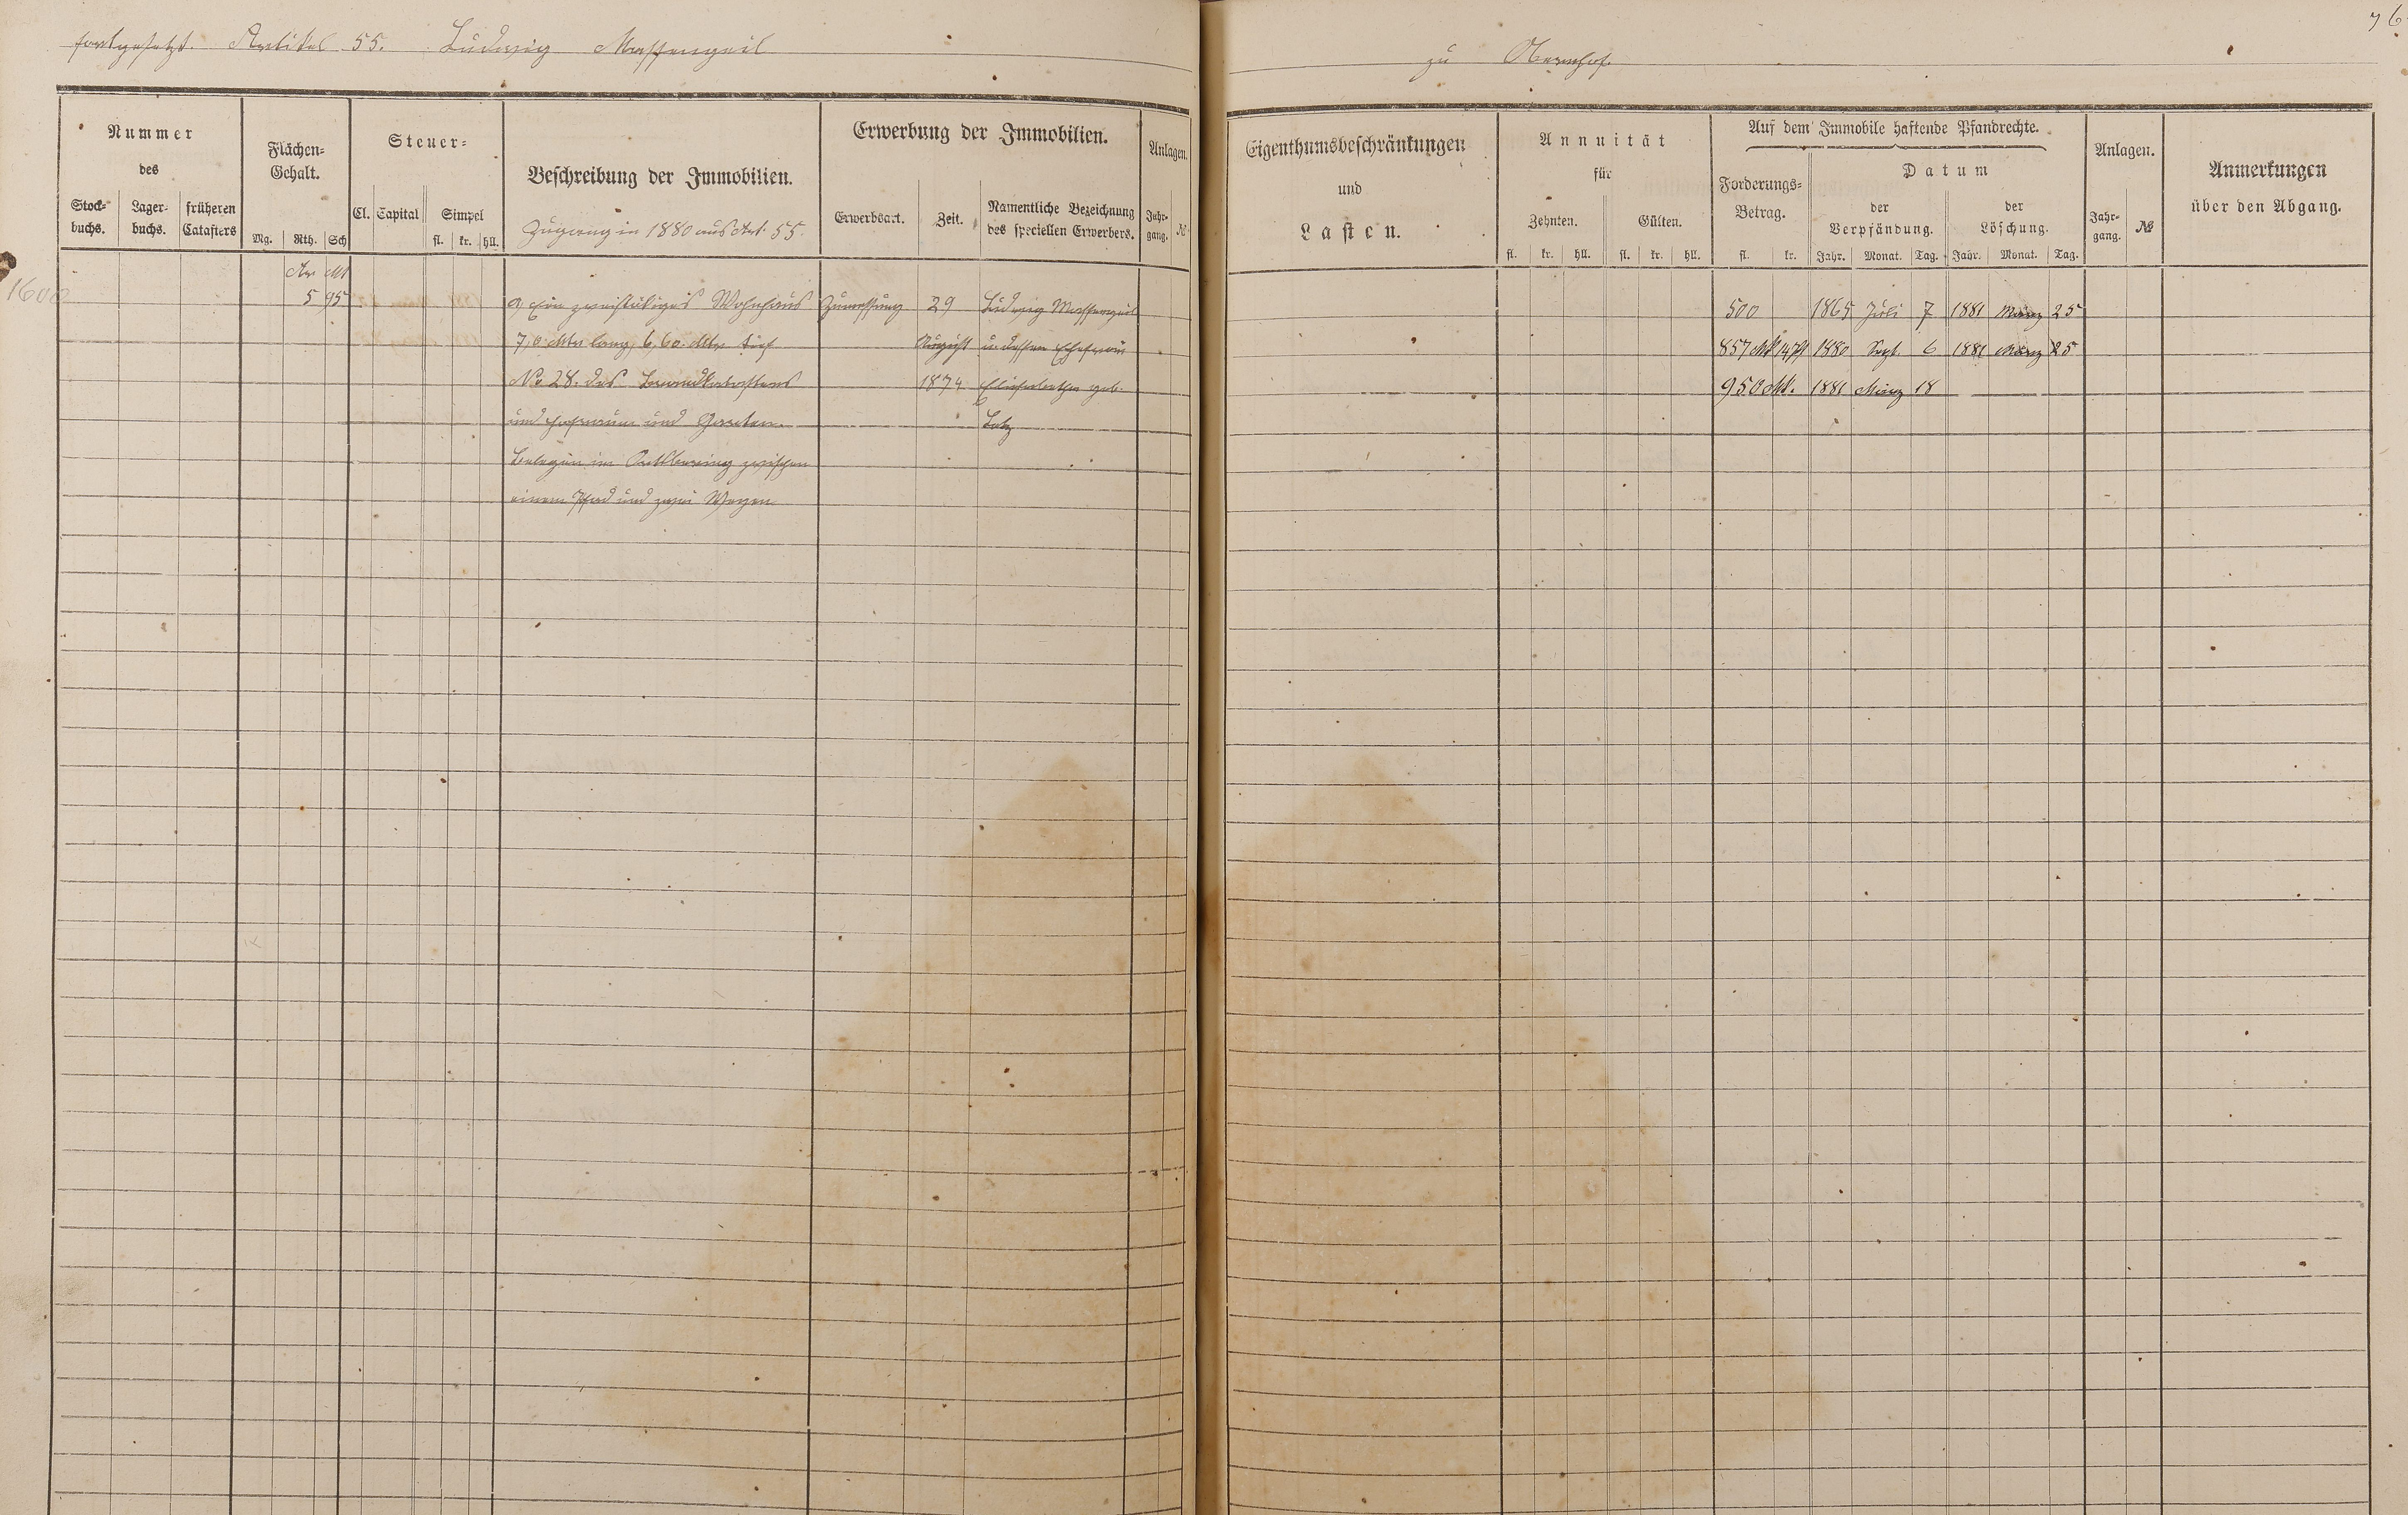 fortgesetzt. Artikel 55. Ludwig Massengeil
zu Obernhof.
76
Nummer
des
Stock-
buchs.
Lager-
buchs.
früheren
Catasters
Flächen-
Gehalt.
Mg. Rth. Sch
Steuer-
Cl. Capital Simpel
fl. kr. hll.
Beschreibung der Immobilien.
Zugang in 1880 aus Art. 55.
Erwerbung der Immobilien.
Erwerbsart. Zeit.
Namentliche Bezeichnung
des speciellen Erwerbers.
Anlagen.
Jahr-
gang.
№
Eigenthumsbeschränkungen
und
Lasten.
Annuität
für
Zehnten. Gülten.
fl. kr. hll. fl. kr. hll.
Auf dem Immobile haftende Pfandrechte.
Forderungs-
Betrag.
fl. kr.
Datum
der
Verpfändung.
der
Löschung.
Jahr. Monat. Tag. Jahr. Monat. Tag.
Anlagen.
Jahr-
gang.
№
Anmerkungen
über den Abgang.
Ar Mt
1600 5 95 a, Ein zweistökiges Wohnhaus Zumessung 29 Ludwig Massengeil 500 1865 Juli 7 1881 März 25
7,0 Mtr lang, 6,60 Mtr. tief August u. dessen Ehefrau 857 Mk 14 Pf 1880 Sept. 6 1881 März 25
No 28. des Brandkatasters 1874 Elisabetha geb. 950 Mk. 1881 März 18
und Hofraum und Garten.
Belegen im Ortsbering zwischen
einem Pfad und zwei Wegen